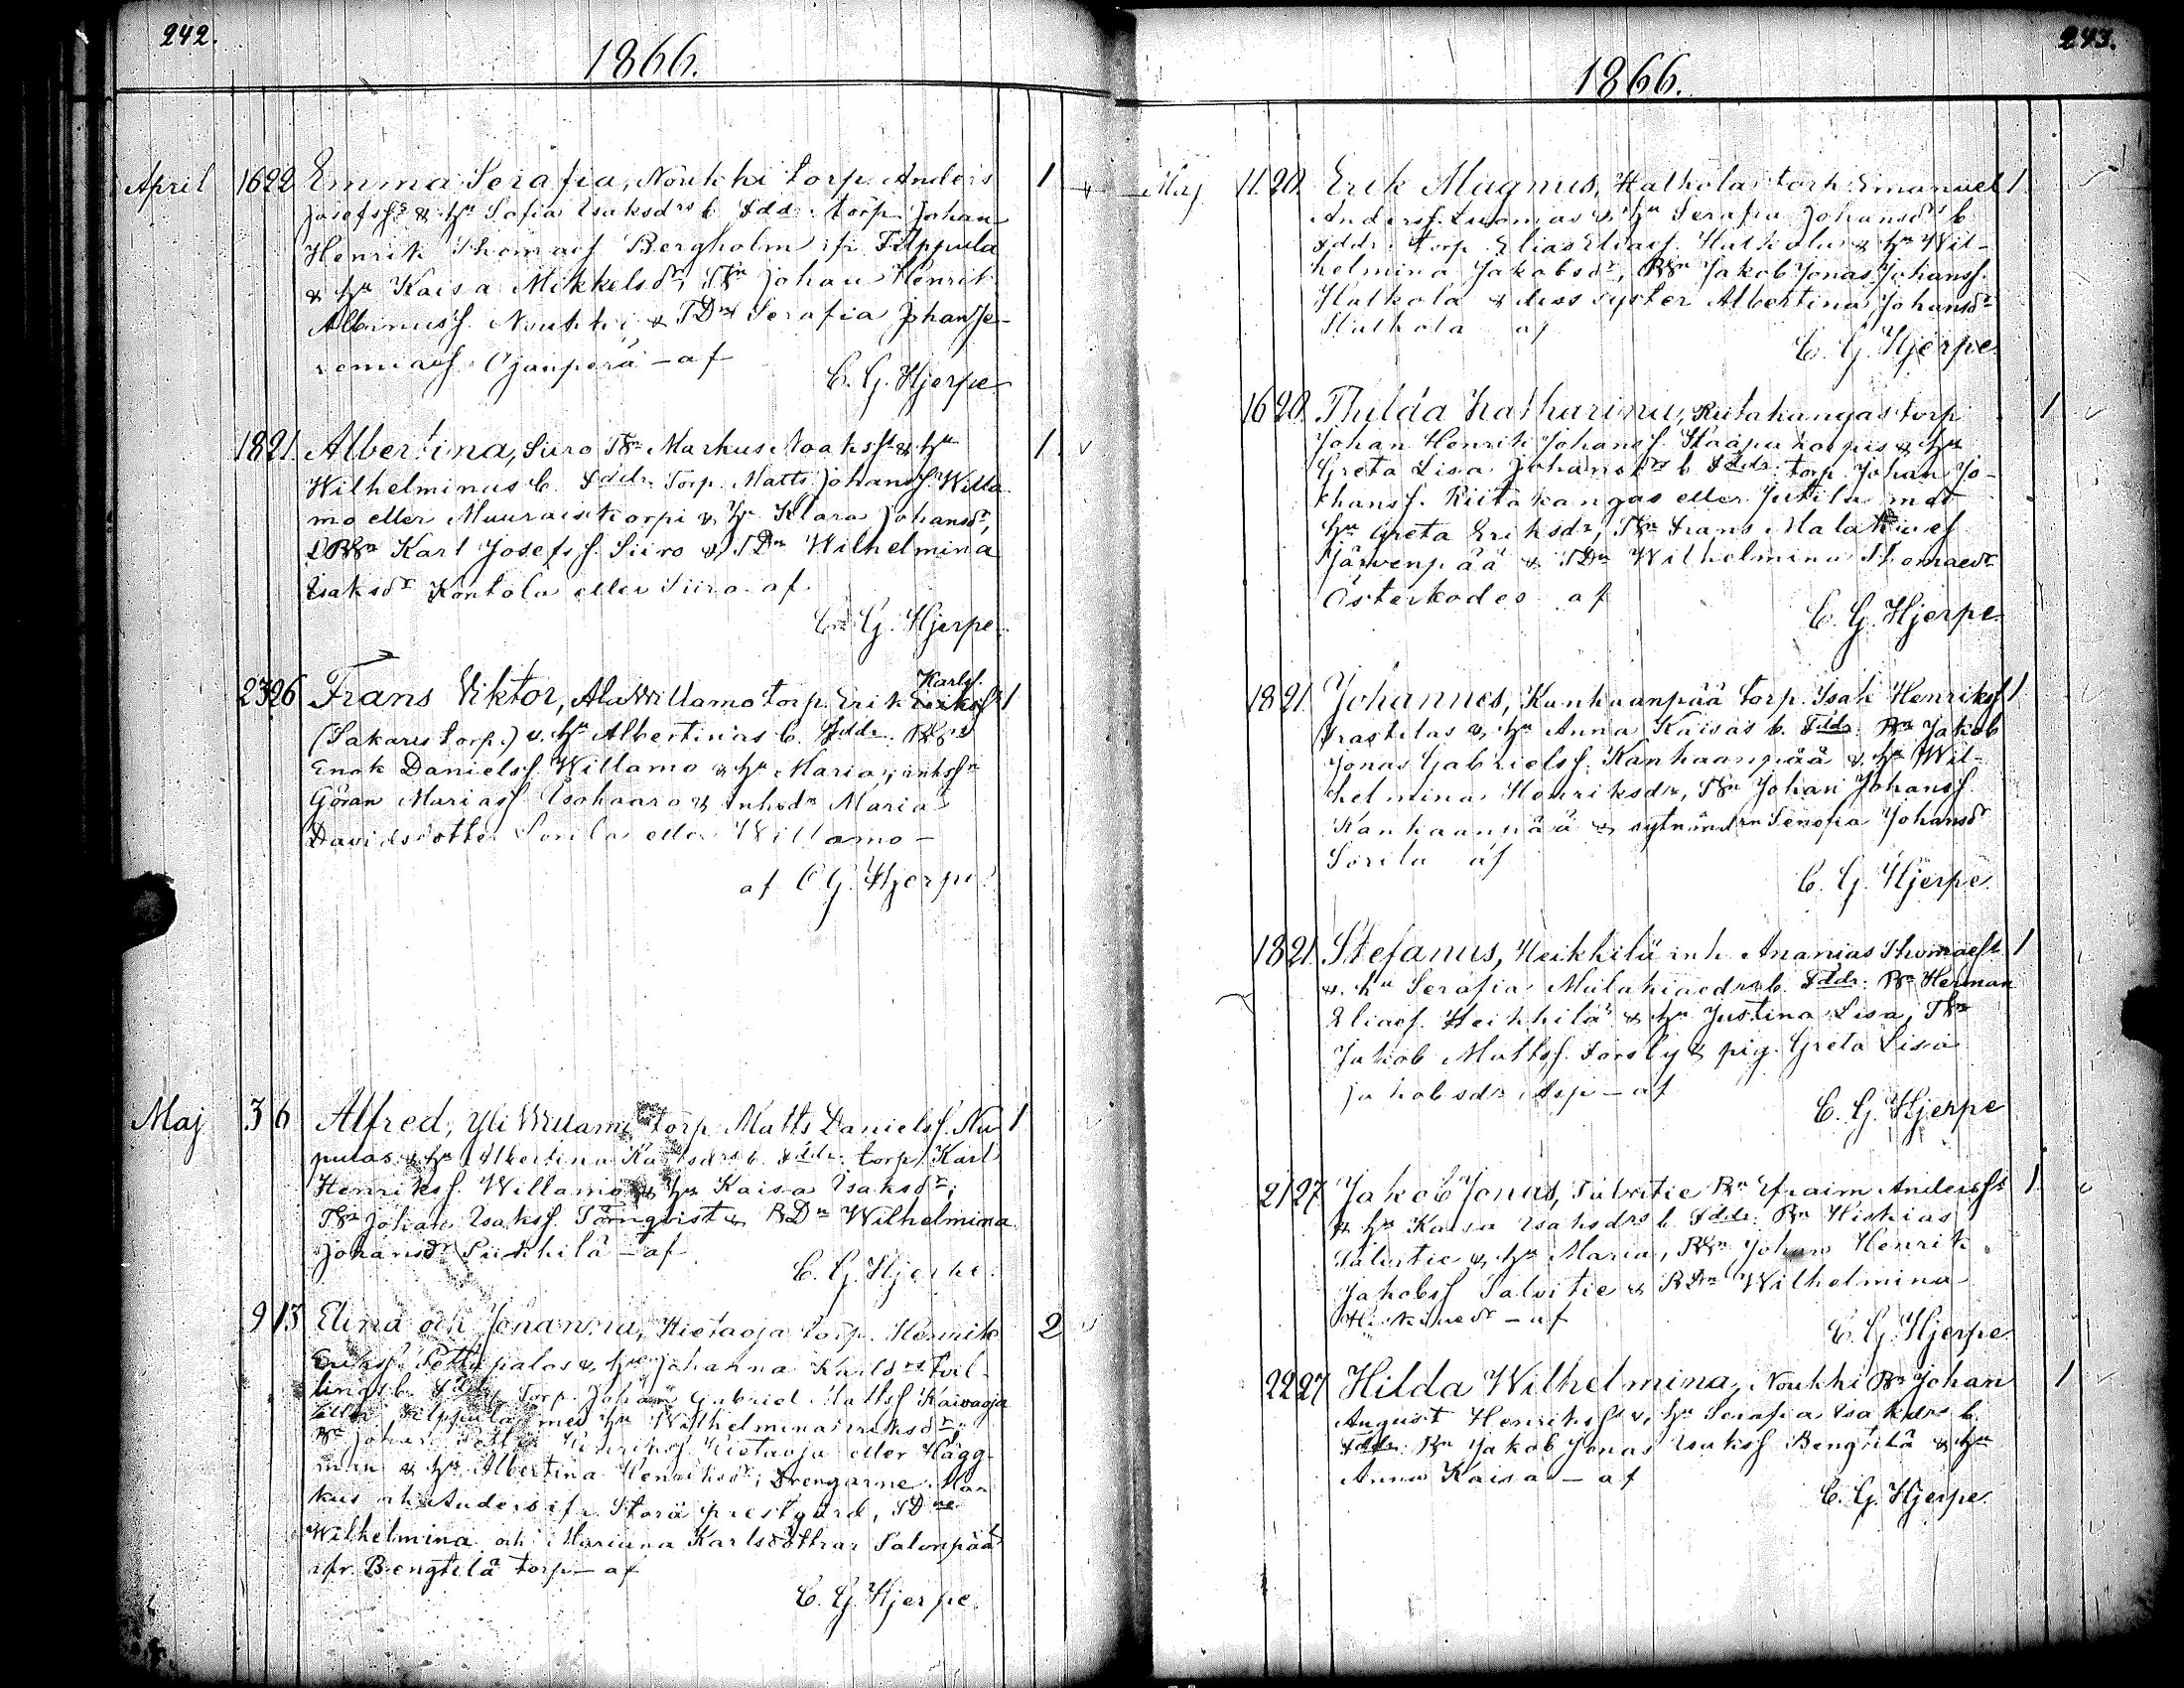 242.
1866.
April 16 22 Emma Serafia, Noukki torp. Anders 1
Josefss & hu Sofia Isaksdrs b. Fddr. torp. Johan
Henrik Thomaef Bergholm ifr. Filppula
& hu Kaisa Mikkelsdr, Johan Henrik
Albinusf. Noukki & TDn Serafia Johan Je-
remiaef Ojanperä – af
C. G. Hjerpe
18 21. Albertina, Siiro Markus Noaksfs & hu 1
Wilhelminas b. Fddr. Torp. Matts Johansf. Willa-
mo eller Muuraiskorpi & hu Klara Johansdr,
Karl Josefsf. Siiro & TDn Wilhelmina
Isaksdr Kontola eller Siiro af
C. G. Hjerpe
23 26 Frans Viktor, Ala Willamo torp. Erik Karlsf. 1
(Sakaris torp.) & hu Albertinas b. Fddr.
Enok Danielsf. Willamo & hu Maria,
Göran Mariasf. Isohaaro & Inhsdn Maria
Davidsdotter Sorila eller Willamo –
af C G. Hjerpe
Maj 3 6 Alfred, Yli Willamo torp. Matts Danielsf. Nu- 1
pulas & hu Albertina Karlsdrs b. Fddr. torp. Karl
Henriksf. Willamo & hu Kaisa Isaksdr;
Johan Isaksf. Törnqvist & BDn Wilhelmina
Johansdr Siikkilä – af
C. G. Hjerpe
9 13 Elina och Johanna, Hietaoja torp. Henrik 2
Eriksf. Pettupalos & hu Johanna Karlsdrs tvil-
lingsb. Fddr. Torp. Johan Gabriel Mattsf. Kaivaoja
eller Filppula med hu Wilhelmina Eriksdr,
Henriksf. Hietaoja eller Hägg-
man & hu Albertina Henriksdr; Drengarne Mar-
kus och Anders ifr. Storå prestgård, TDne
Wilhelmina och Mariana Karlsdöttrar Salonpää
ifr. Bengtilä torp – af
C. G. Hjerpe
243.
1866.
Maj 11. 20. Erik Magnus, Hatkola torp. Emanuel 1
Andersf. Luomas & hu Serafia Johansdrs b.
Fddr. torp. Elias Eliaef. Hatkola & hu Wil-
helmina Jakobsdr, Jakob Jonas Johansf.
Hatkola & dess syster Albertina Johansdr
Hatkola af
C. G. Hjerpe
16 20. Thilda Katharina, Riitakangas torp. 1
Johan Henrik Johansf. Haapakorpis & hu
Greta Lisa Johansdrs b. Fddr. torp. Johan Jo-
hansf. Riitakangas eller Jutila med
hu Greta Eriksdr, Frans Malakiaef.
Järvenpää & TDn Wilhelmina Thomaedr
Österkodes af
C. G. Hjerpe
18 21. Johannes, Kanhaanpää torp. Isak Henriksf. 1
Prastilas & hu Anna Kaisas b. Fddr. Bn Jakob
Jonas Gabrielsf. Kanhaanpää & hu Wil-
helmina Henriksdr, Johan Johansf.
Kankaanpää & Senofia Johansdr
Sorila af
C. G. Hjerpe
18 21. Stefanus, Heikkilä inh. Ananias Thomaefs 1
& hu Serafia Malakiaedrs b. Fddr. Bn Herman
Eliaef. Heikkilä & hu Justina Lisa,
Jakob Mattsf. Forsby & pig. Greta Lisa
Jakobsdr Asp – af
C. G. Hjerpe
21 27 Jakob Jonas, Salvitie Bn Efraim Andersfs 1
& hu Kaisa Isaksdrs b. Fddr. Bn Hiskias
Salvitie & hu Maria, Johan Henrik
Jakobsf. Salvitie & BDn Wilhelmina
Hiskiaedr – af
C. G. Hjerpe
22 27 Hilda Wilhelmina, Noukki Bn Johan 1
August Henriksfs & hu Serafia Isaksdrs b.
Fddr. Bn Jakob Jonas Isaksf. Bengtilä & hu
Anna Kaisa – af
C. G. Hjerpe